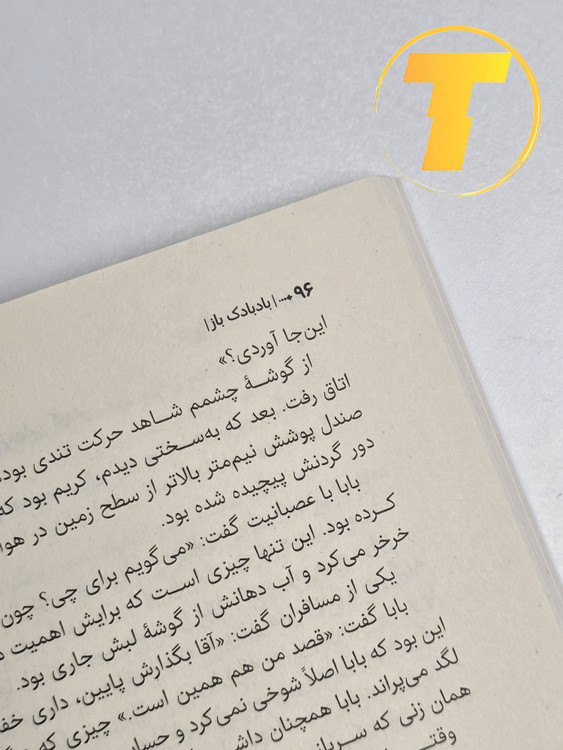 T
۹۶ | بادبادک باز |
این‌جا آوردی؟»
از گوشهٔ چشمم شاهد حرکت تندی بود
اتاق رفت. بعد که به‌سختی دیدم، کریم بود که
صندل پوشش نیم‌متر بالاتر از سطح زمین در هوا
دور گردنش پیچیده شده بود.
بابا با عصبانیت گفت: «می‌گویم برای چی؟ چون
کرده بود. این تنها چیزی است که برایش اهمیت
خرخر می‌کرد و آب دهانش از گوشهٔ لبش جاری بود.
یکی از مسافران گفت: «آقا بگذارش پایین، داری
بابا گفت: «قصد من هم همین است.» چیزی که
این بود که بابا اصلاً شوخی نمی‌کرد و
لگد می‌پراند. بابا همچنان
همان زنی که